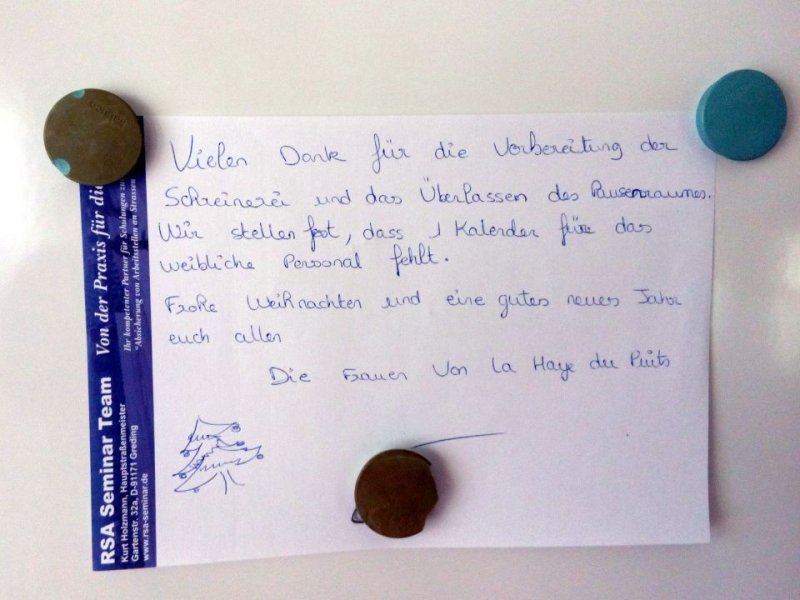 Vielen Dank für die Vorbereitung der
Schreinerei und das Überlassen des Pausenraumes.
Wir stellen fest, dass 1 Kalender für das
weibliche Personal fehlt.
Frohe Weihnachten und eine gutes neues Jahr
euch allen
Die Frauen Von La Haye du Puits
RSA Seminar Team Von der Praxis für die
Kurt Holzmann, Hauptstraßenmeister
Gartenstr. 32a, D-91171 Greding
www.rsa-seminar.de
Ihr kompetenter Partner für Schulungen zu
"Absicherung von Arbeitsstellen an Strassen